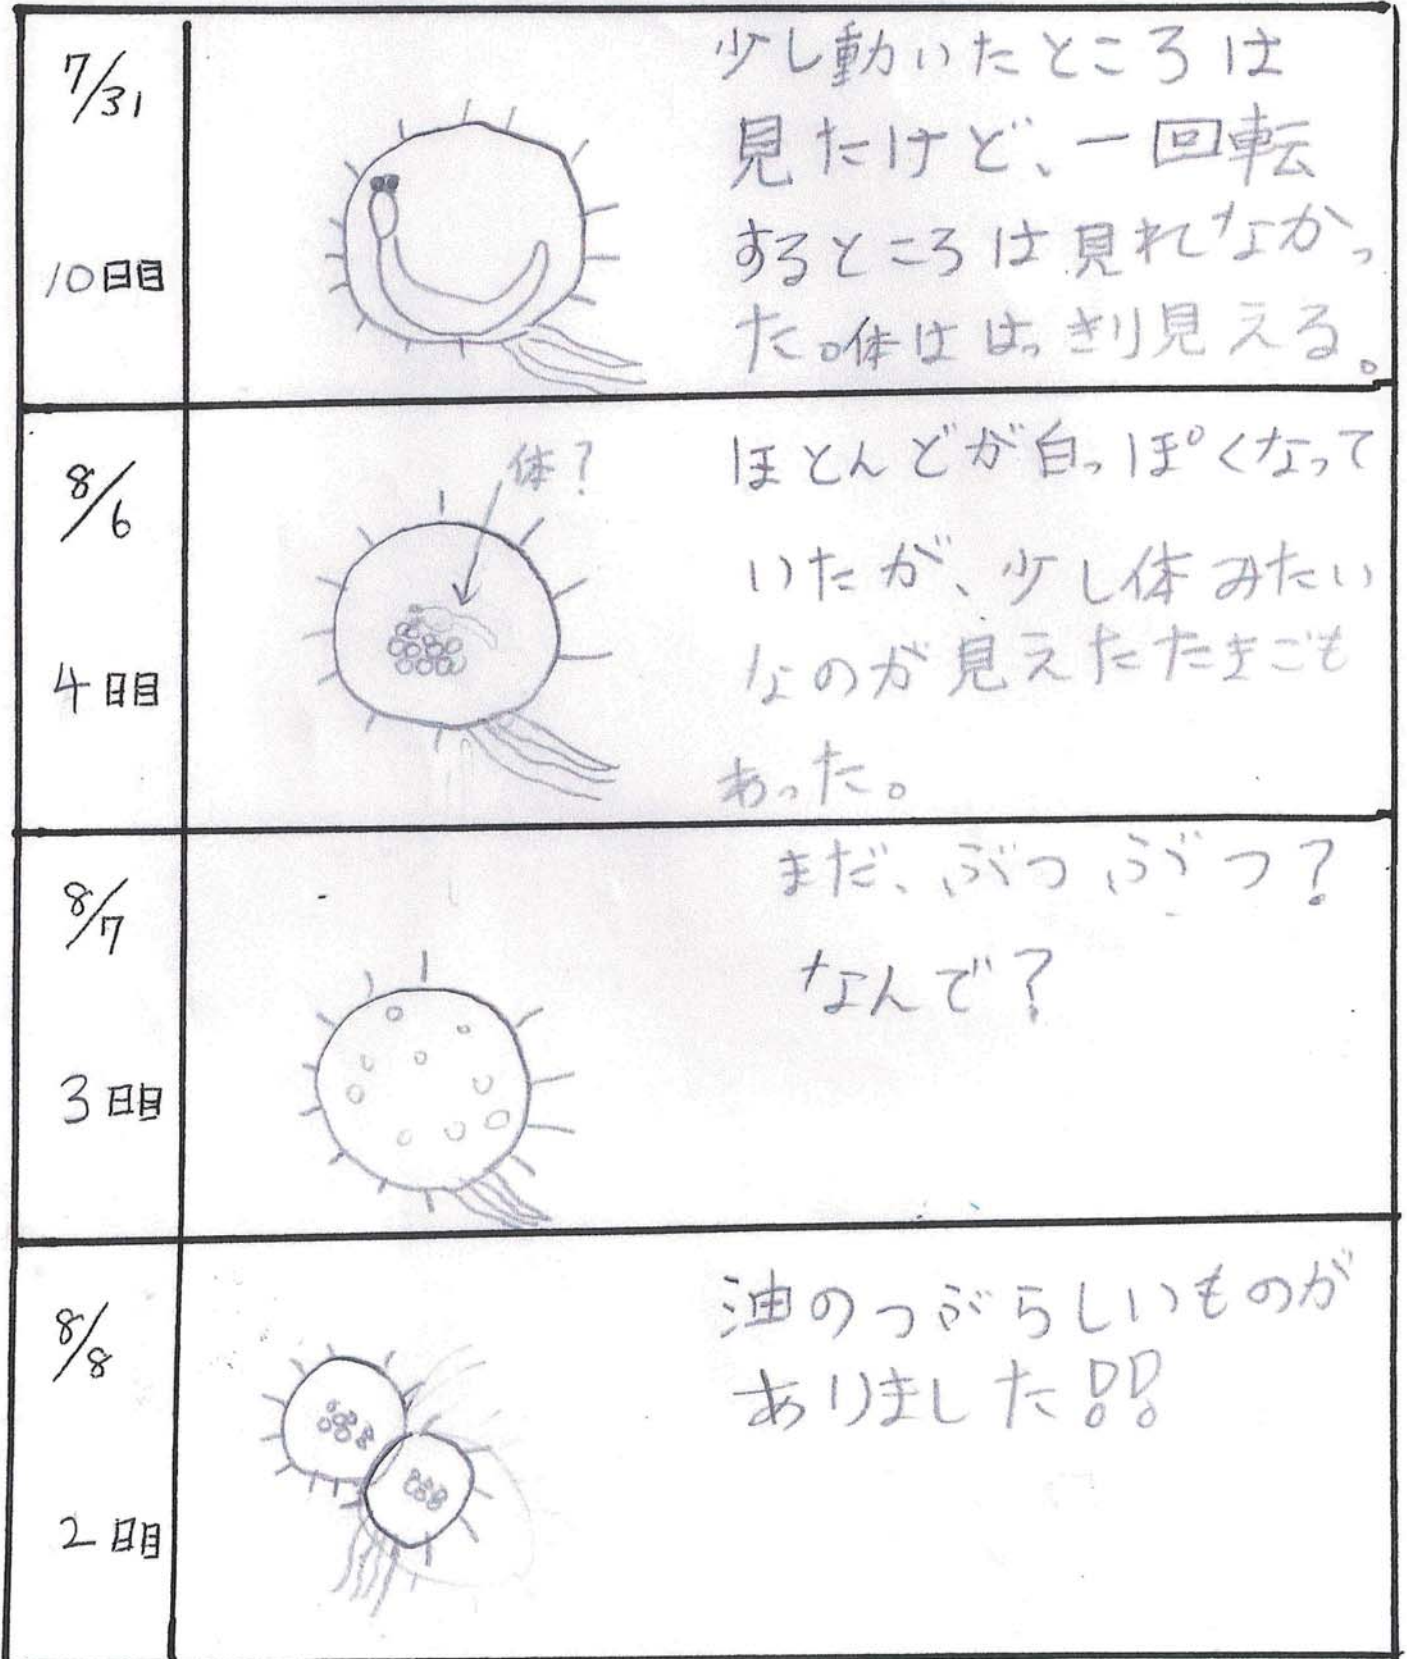 7/31
10日目
少し動いたところは
見たけど、一回転
するところは見れなかっ
た。体ははっきり見える。
8/6
4日目
体?
ほとんどが白っぽくなって
いたが、少し体みたい
なのが見えたたまごも
あった。
8/7
3日目
まだ、ぶつぶつ?
なんで?
8/8
2日目
油のつぶらしいものが
ありました!!